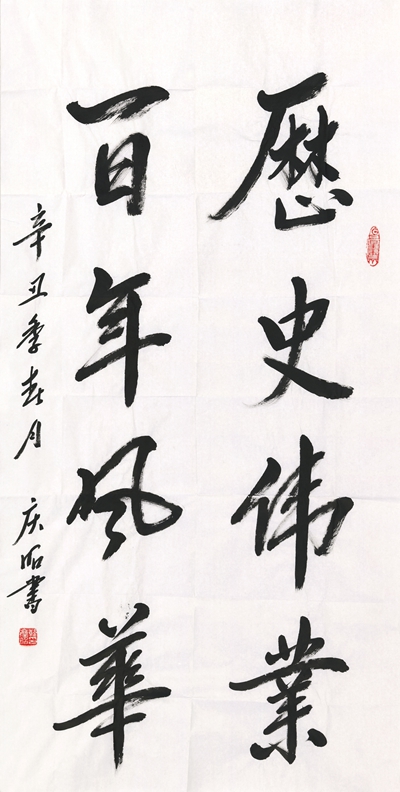 歷史伟業
百年风華
辛丑季春月 庆昭書